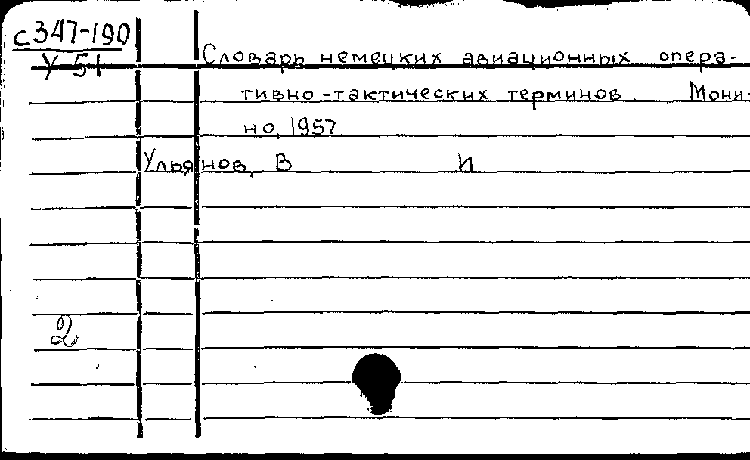 с347-190
У 51
Словарь немецких авиационных опера-
тивно-тактических терминов Мони-
но, 1957
Ульянов, В И
2